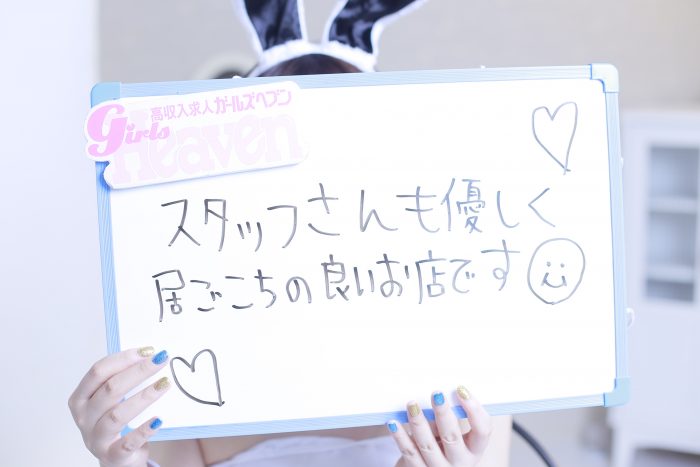 高収入求人ガールズヘブン
Girls
Heaven
スタッフさんも優しく
居ごこちの良いお店です